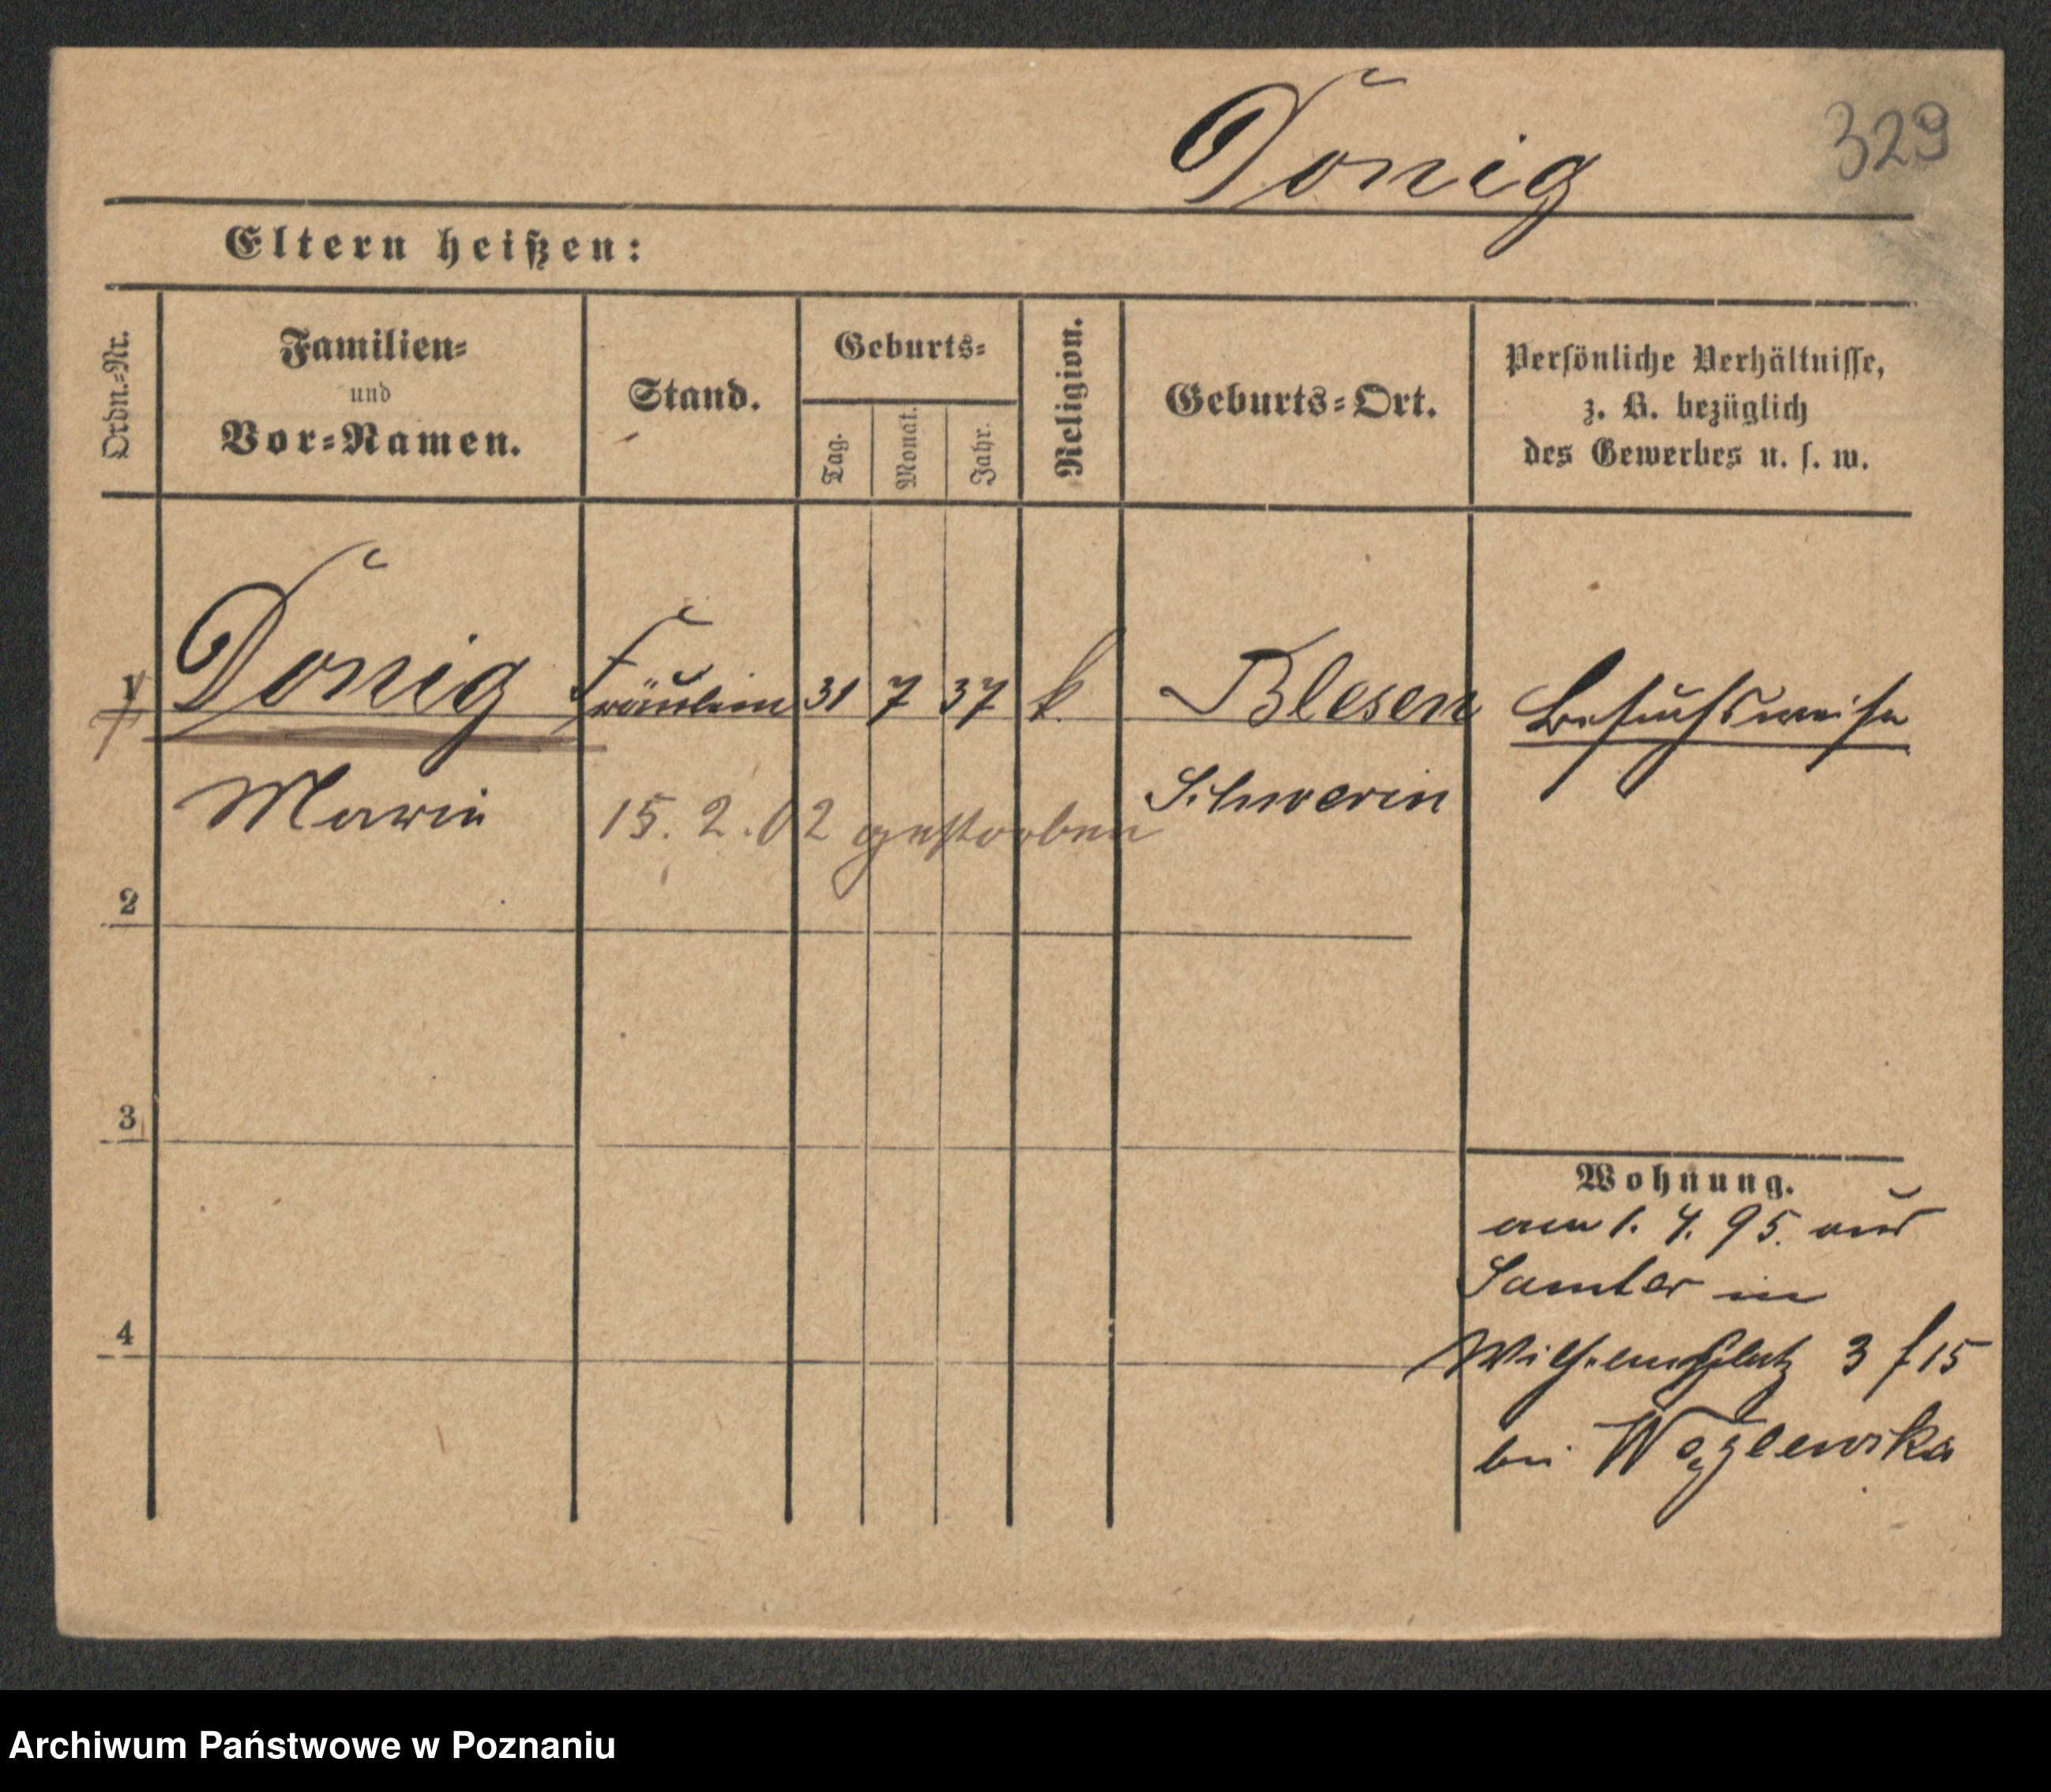 Donig
329
Eltern heißen:
Ordn.-Nr.
Familien-
und
Vor-Namen.
Stand.
Geburts-
Tag.
Monat.
Jahr.
Religion.
Geburts-Ort.
Persönliche Verhältnisse,
z. B. bezüglich
des Gewerbes u. s. w.
1
Donig Fräulein 31 7 37 k. Blesen Besuchsweise
Marie 15. 2. 02 gestorben Schwerin
2
3
4
Wohnung.
am 1. 4. 95. aus
Samter in
Wilhelmsplatz 3 f 15
bei Węglewska
Archiwum Państwowe w Poznaniu